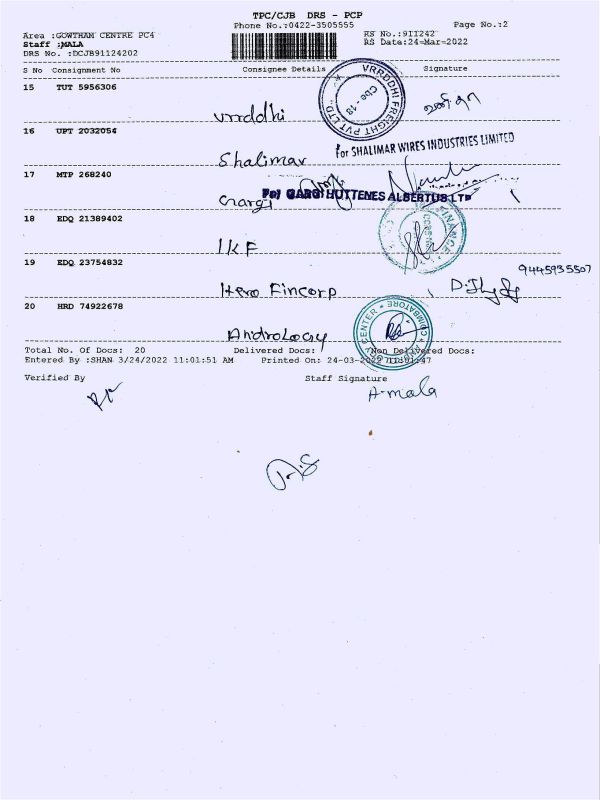 TPC/CJB DRS - PCP
Phone No.:0422-3505555
Page No.:2
Area :GOWTHAM CENTRE PC4
RS No.:911242
Staff :MALA
RS Date:24-Mar-2022
DRS No. :DCJB91124202
S No Consignment No Consignee Details Signature
15 TUT 5956306
Vrrddhi
VRRDDHI FREIGHT PVT LTD
Cbe - 18
16 UPT 2032054
Shalimar
For SHALIMAR WIRES INDUSTRIES LIMITED
17 MTP 268240
Gargi
For GARGI HUTTENES ALBERTUS LTD
18 EDQ 21389402
IKF
FINANCE
19 EDQ 23754832
Hero Fincorp
9445935507
20 HRD 74922678
Andrology
CENTER * COIMBATORE *
Total No. Of Docs: 20 Delivered Docs: Non Delivered Docs:
Entered By :SHAN 3/24/2022 11:01:51 AM Printed On: 24-03-2022 11:01:47
Verified By Staff Signature
A-mala